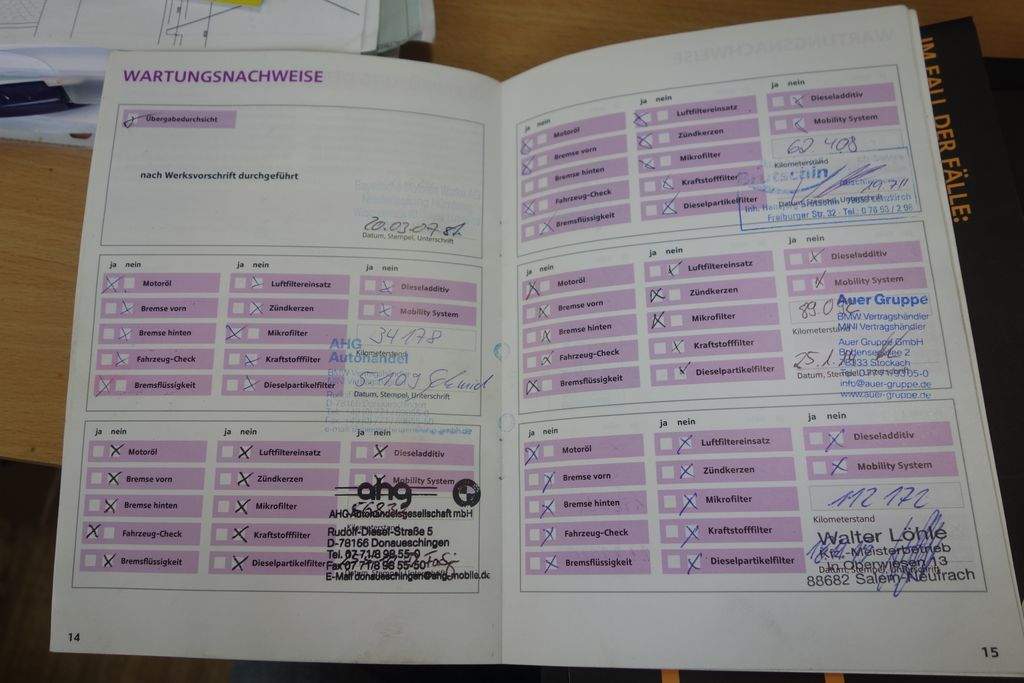 WARTUNGSNACHWEISE
Übergabedurchsicht
nach Werksvorschrift durchgeführt
20.03.07
Datum, Stempel, Unterschrift
ja nein ja nein ja nein
Motoröl Luftfiltereinsatz Dieseladditiv
Bremse vorn Zündkerzen Mobility System
Bremse hinten Mikrofilter 34178
Fahrzeug-Check Kraftstofffilter Kilometerstand
Bremsflüssigkeit Dieselpartikelfilter
Datum, Stempel, Unterschrift
AHG
Autohandel
ja nein ja nein ja nein
Motoröl Luftfiltereinsatz Dieseladditiv
Bremse vorn Zündkerzen Mobility System
Bremse hinten Mikrofilter
Fahrzeug-Check Kraftstofffilter
Bremsflüssigkeit Dieselpartikelfilter
ahg
AHG Autohandelsgesellschaft mbH
Rudolf-Diesel-Straße 5
D-78166 Donaueschingen
Tel. 07 71/8 98 55-0
Fax 07 71/8 98 55-50
E-Mail donaueschingen@ahg-mobile.de
14
ja nein ja nein ja nein
Motoröl Luftfiltereinsatz Dieseladditiv
Bremse vorn Zündkerzen Mobility System
Bremse hinten Mikrofilter 60 408
Fahrzeug-Check Kraftstofffilter Kilometerstand
Bremsflüssigkeit Dieselpartikelfilter
Freiburger Str. 32
ja nein ja nein ja nein
Motoröl Luftfiltereinsatz Dieseladditiv
Bremse vorn Zündkerzen Mobility System
Bremse hinten Mikrofilter
Fahrzeug-Check Kraftstofffilter Kilometerstand
Bremsflüssigkeit Dieselpartikelfilter
Auer Gruppe
BMW Vertragshändler
MINI Vertragshändler
Auer Gruppe GmbH
Bodenseeallee 2
78333 Stockach
info@auer-gruppe.de
www.auer-gruppe.de
ja nein ja nein ja nein
Motoröl Luftfiltereinsatz Dieseladditiv
Bremse vorn Zündkerzen Mobility System
Bremse hinten Mikrofilter 112 172
Fahrzeug-Check Kraftstofffilter Kilometerstand
Bremsflüssigkeit Dieselpartikelfilter
Walter Löhle
Kfz.-Meisterbetrieb
In Oberwiesen 13
88682 Salem-Neufrach
15
IM FALL DER FÄLLE: